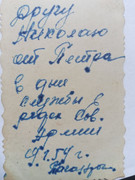 Другу
Николаю
от Петра
в дни
службы в
рядах Св.
Армии